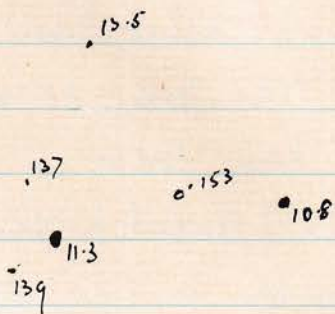 13.5
137
153
10.8
11.3
139